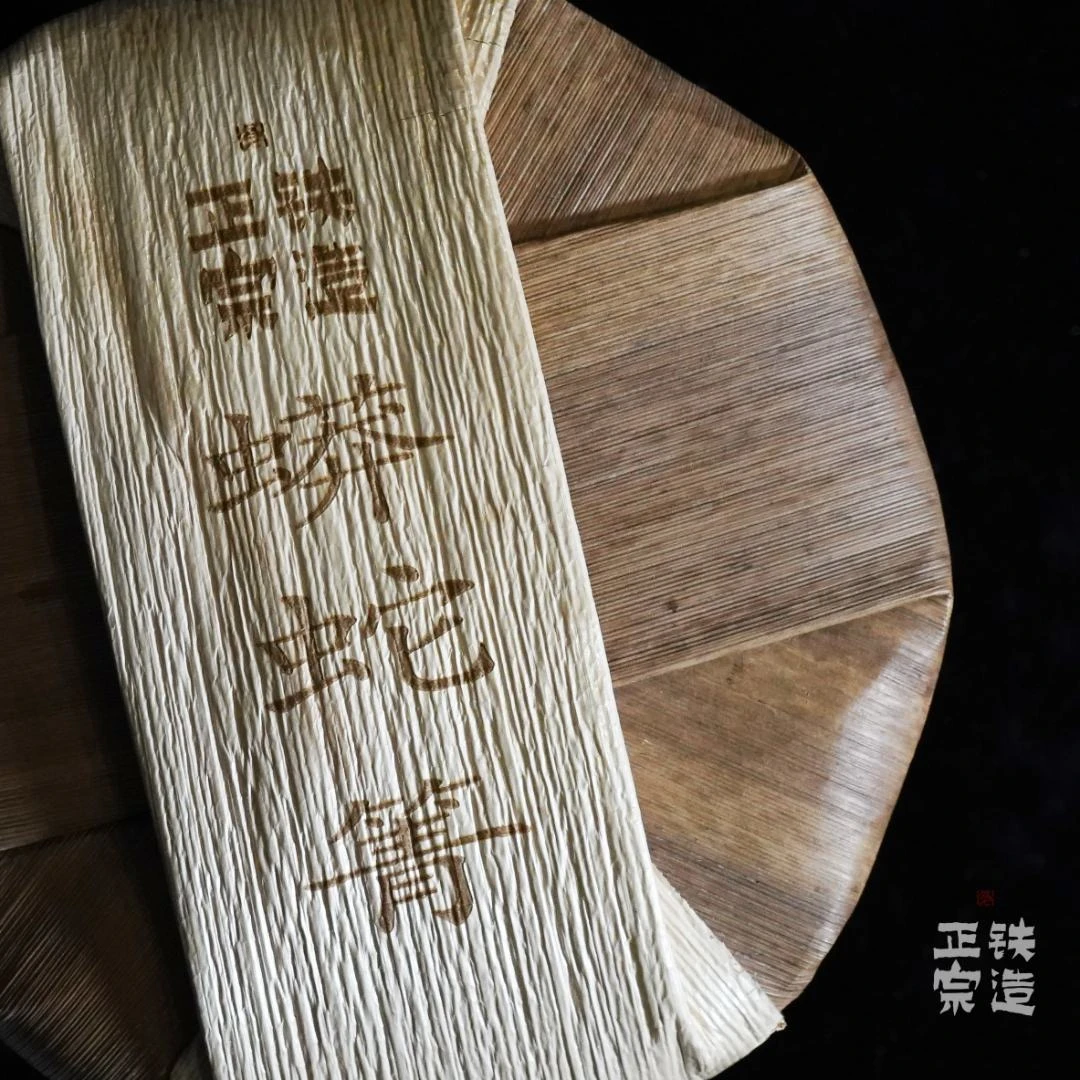 铁造
正宗
蟒蛇箐
铁造
正宗